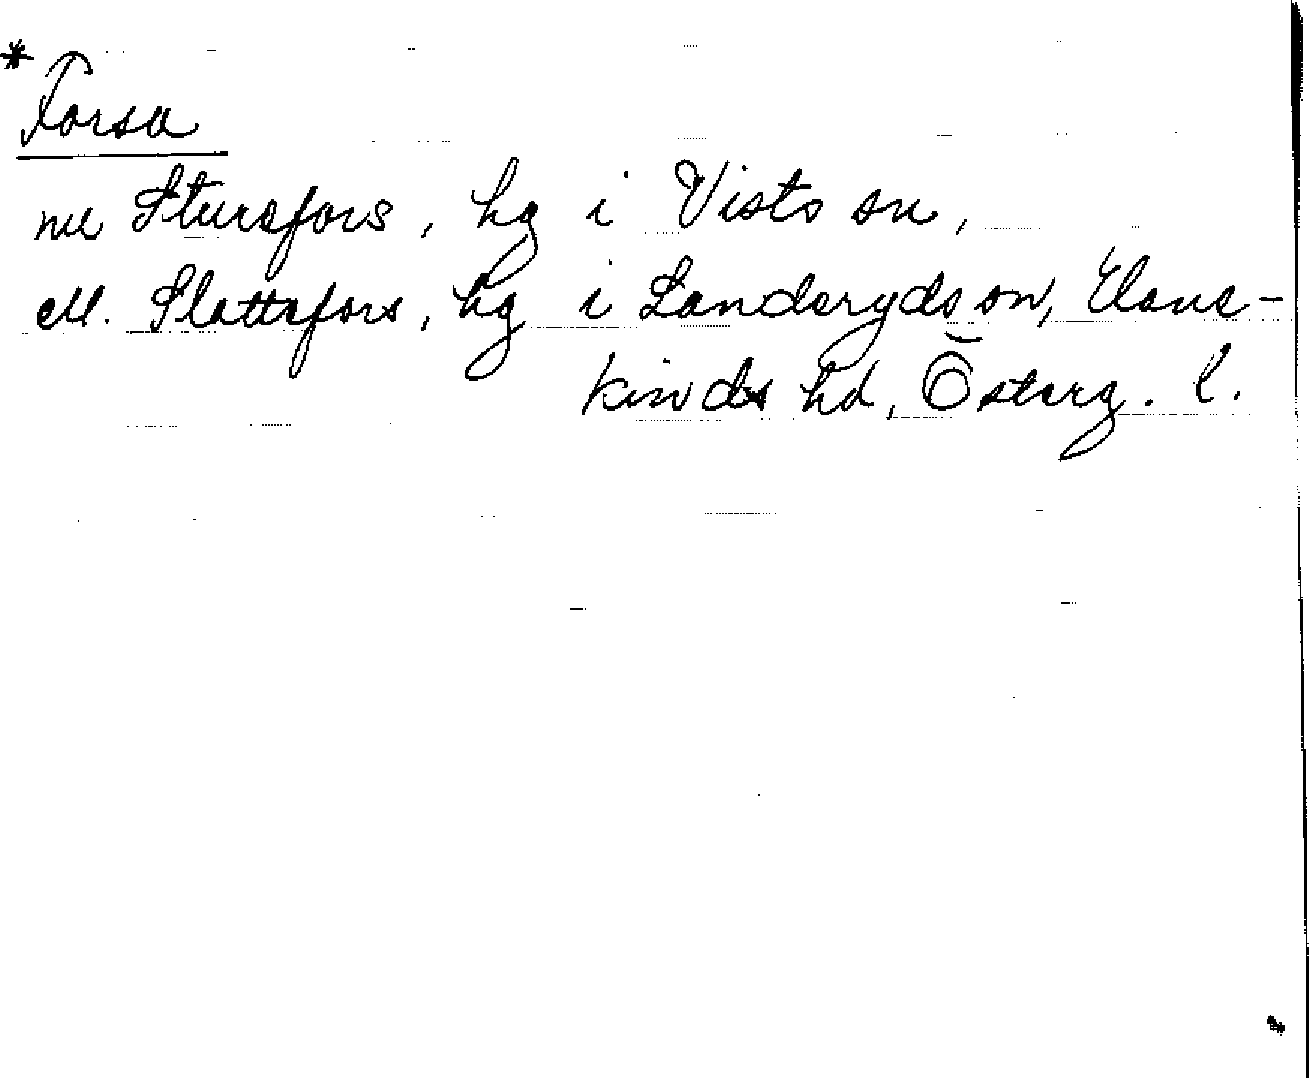 *
Forsa
nu Sturefors, hg i Vists sn,
ell. Slattefors, hg i Landeryds sn, Hane-
kinds hd, Österg. l.